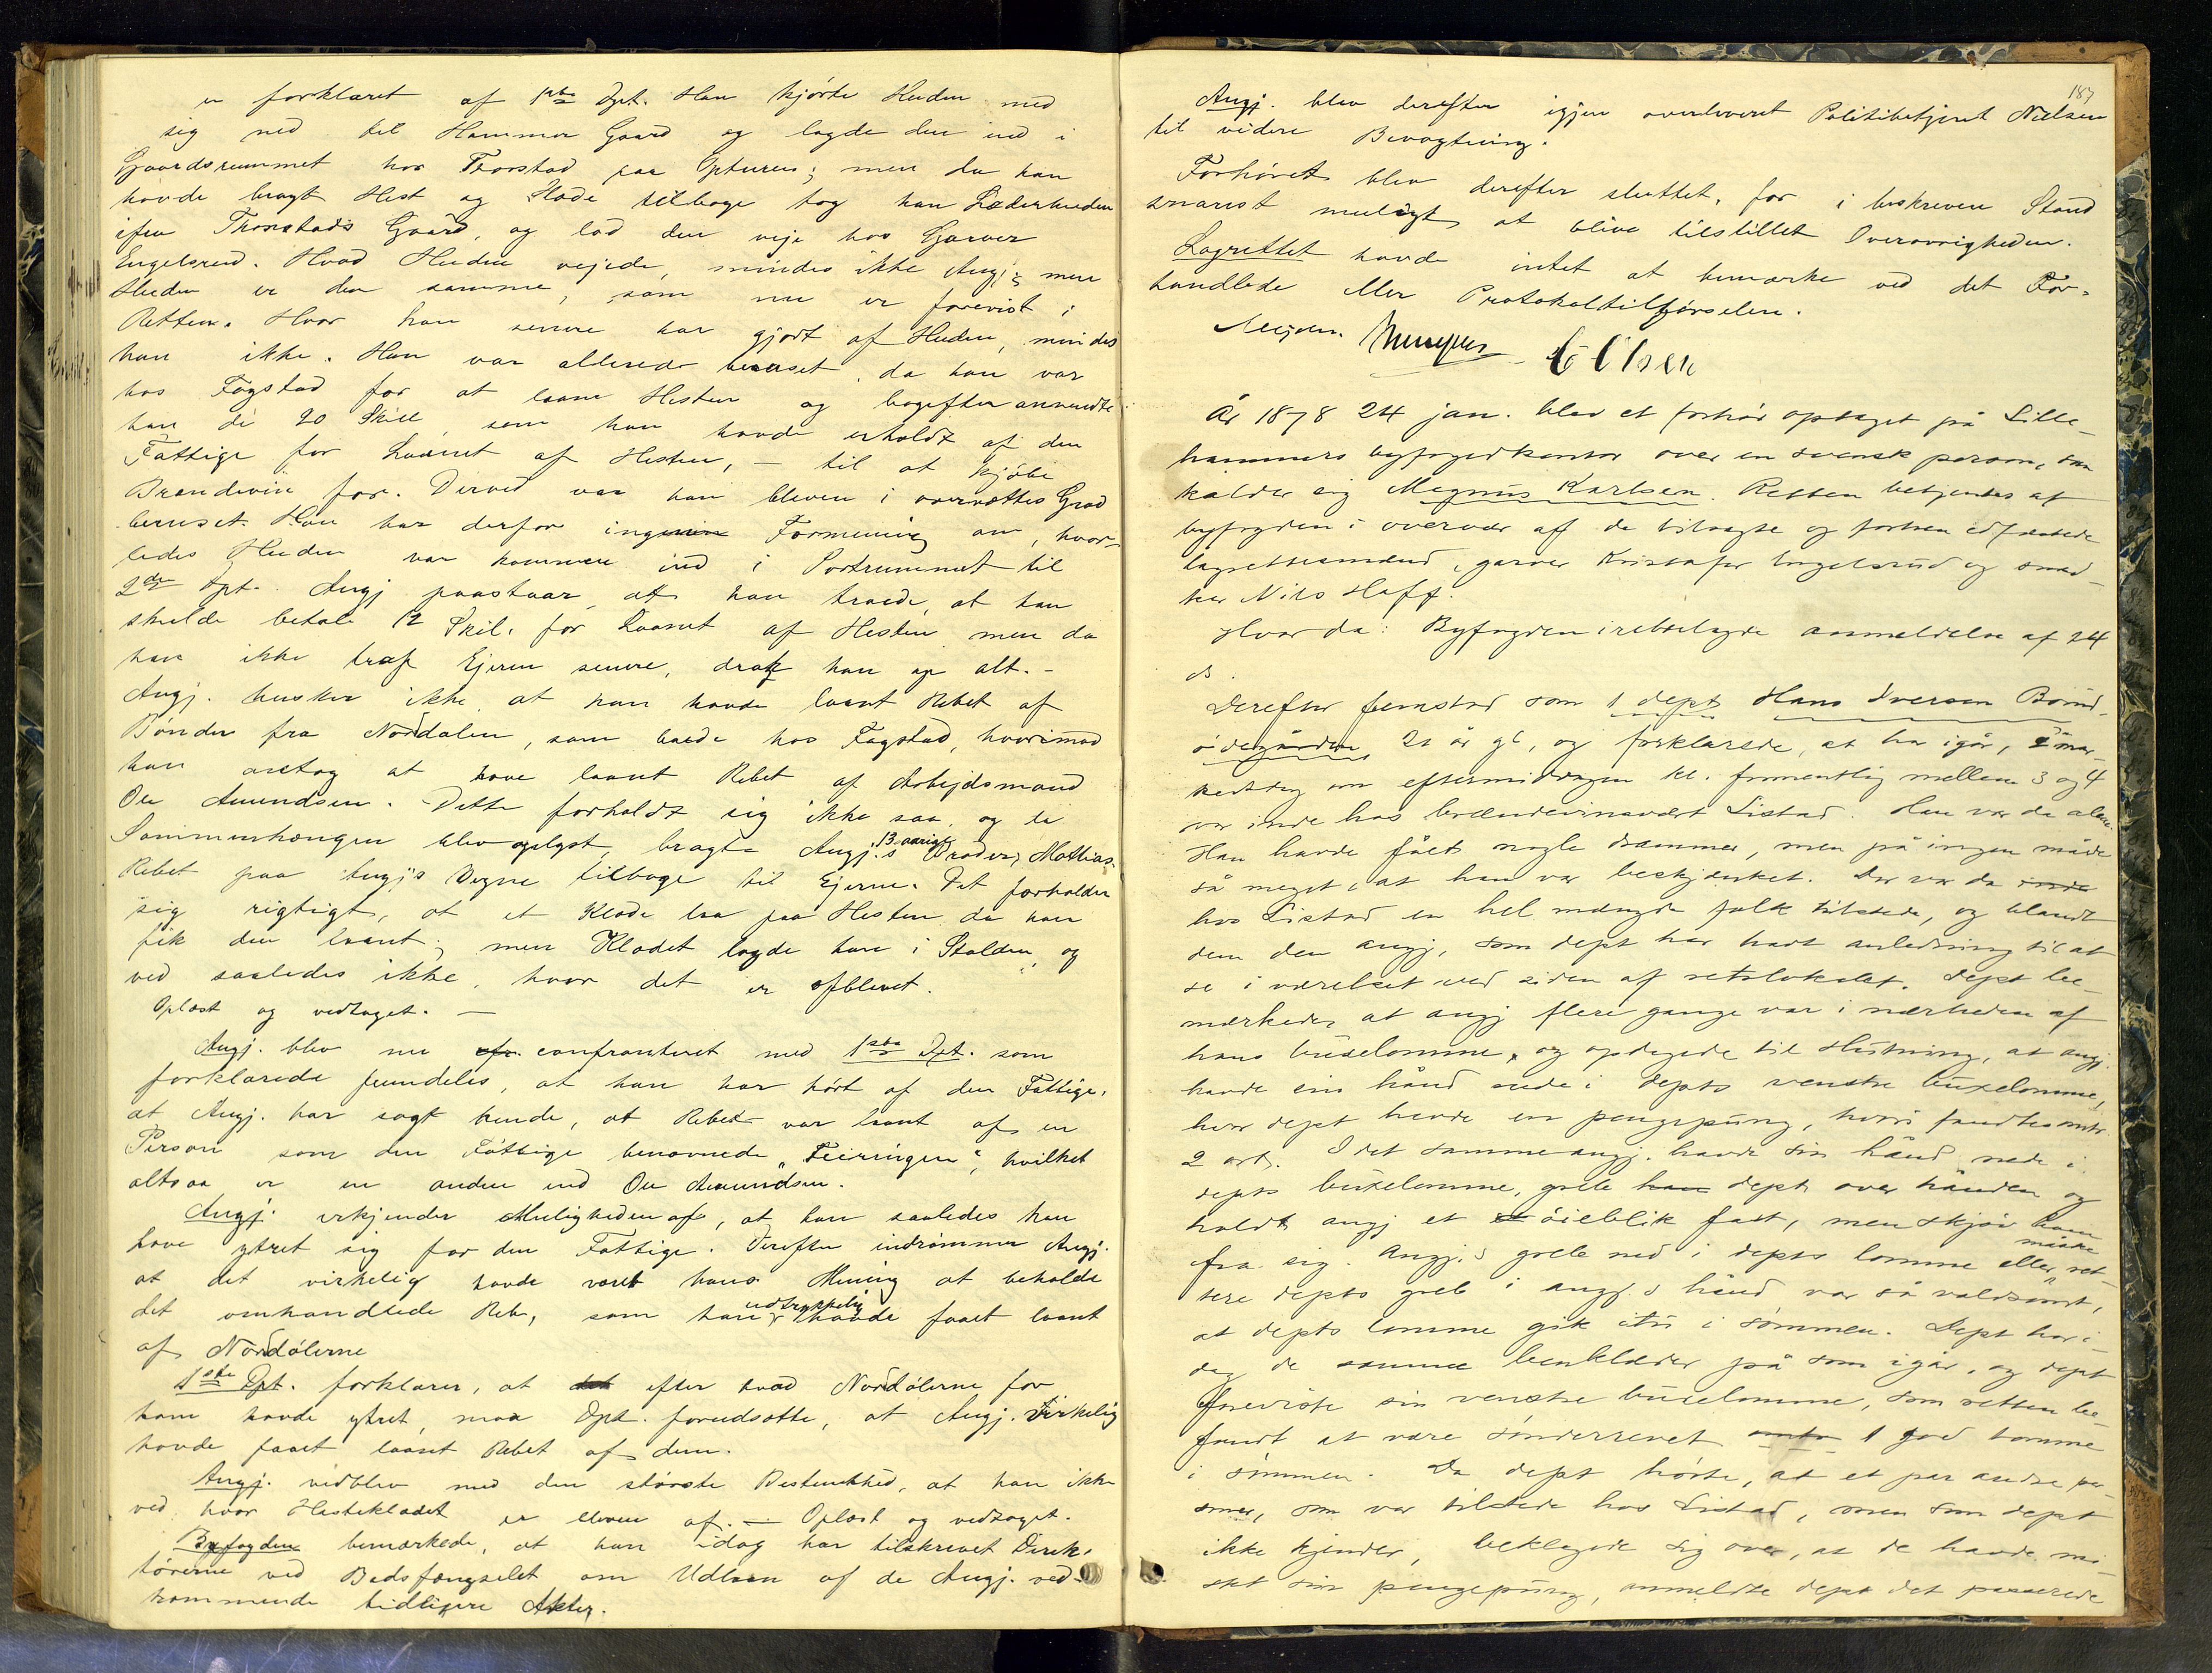 er forklaret af 1ste Dpt. Han kjørte Huden med
sig ned til Hammer Gaard og lagde den ind i
Gaardsrummet hos Thorstad paa Opturen; men da han
havde bragt Hest og Slæde tilbage tog han Læderhuden
ifra Thorstads Gaard, og lod den veje hos Garver
Engelsrud. Hvad Huden vejede, mindes ikke Angj; men
Huden er den samme, som nu er forevist i
Retten. Hvor han senere har gjort af Huden, mindes
han ikke. Han var allerede beruset, da han var
hos Fagstad for at laane Hesten og bagefter anvendte
han de 20 Skill, som han havde erholdt af den
Fattige for Laanet af Hesten, – til at kjøbe
Brændevin for. Derved var han bleven i overvættes Grad
beruset. Han har derfor ingen Formening om, hvor-
ledes Huden var kommen ind i Portrummet til
2den Dpt. Angj paastaar, at han troede, at han
skulde betale 12 Skil. for Laanet af Hesten men da
han ikke traf Ejeren senere, drak han op alt. –
Angj. husker ikke, at han havde laant Rebet af
Bønder fra Norddalen, som boede hos Fagstad, hvorimod
han antog at have laant Rebet af Arbejdsmand
Ole Amundsen. Dette forholdt sig ikke saa, og da
Sammenhængen blev oplyst, bragte Angj.s 13 aarige Broder, Mathias
Rebet paa Angj's Vegne tilbage til Ejerne. Det forholder
sig rigtigt, at et Klæde laa paa Hesten da han
fik den laant; men Klædet lagde han i Stalden, og
ved saaledes ikke, hvor det er afblevet.
Oplæst og vedtaget. –
Angj. blev nu confronteret med 1ste Dpt. som
forklarede fremdeles, at han har hørt af den Fattige,
at Angj. har sagt hende, at Rebet var laant af en
Person som den Fattige benævnede "Feiringen", hvilket
altsaa er en anden end Ole Amundsen.
Angj. erkjender Muligheden af, at han saaledes kan
have ytret sig for den Fattige. Derefter indrømmer Angj.
at det virkelig havde været hans Mening at beholde
det omhandlede Reb, som han udtrykkelig havde faaet laant
af Norddølerne
1ste Dpt. forklarer, at efter hvad Norddølerne for
ham havde ytret, maa Dpt. forudsætte, at Angj. virkelig
havde faaet laant Rebet af dem.
Angj. vedblev med den største Bestemthed, at han ikke
ved, hvor Hesteklædet er bleven af. – Oplæst og vedtaget.
Byfogden bemærkede, at han idag har tilskrevet Direk-
tørerne ved Bodsfængselet om Udlaan af de Angj. ved-
kommende tidligere Akter.
187
Angj. blev derefter igjen overleveret Politibetjent Nielsen
til videre Bevogtning.
Forhøret blev derefter sluttet, for i beskreven Stand
snarest muligt at blive tilstillet Overøvrigheden.
Lagrettet havde intet at bemærke ved det For-
handlede eller Protokoltilførselen.
C Olsen
År 1878 24 jan. blev et forhør optaget på Lille-
hammers byfogedkontor over en svensk person, som
kalder sig Magnus Karlsen. Retten betjentes af
byfogden i overvær af de tilsagte og forhen edfæstede
lagrettesmænd, garver Kristofer Engelsrud og sned-
ker Nils Hoff.
Hvor da: Byfogden irettelagde anmeldelse af 24
ds.
Derefter fremstod som 1 dept Hans Iversen Brænd-
ødegården 21 år gl, og forklarede, at han igår, 2 mar-
kedsdag om eftermiddagen kl. formentlig mellem 3 og 4
var inde hos brændevinsvært Listad. Han var da alene.
Han havde fået nogle drammer, men på ingen måde
så meget, at han var beskjænket. Der var da inde
hos Listad en hel mængde folk tilstede, og blandt
dem den angj, som dept har havt anledning til at
se i værelset ved siden af retslokalet. Dept be-
mærkede, at angj flere gange var i nærheden af
hans buxelomme, og opdagede til Slutning, at angj.
havde sin hånd nede i depts venstre buxelomme,
hvor dept havde en pengepung, hvori fandtes omtr.
2 ort. I det samme angj. havde sin hånd nede i
depts buxelomme, greb han dept over hånden og
holdt angj et øieblik fast, men skjøv ham
fra sig. Angj.s greb ned i depts lomme eller måske ret-
tere depts greb i angj.s hånd var så voldsomt,
at depts lomme gik itu i sømmen. Dept har i
dag de samme benklæder på som igår, og dept
foreviste sin venstre buxelomme, som retten be-
fandt at være sønderrevet omtr 1 god tomme
i sømmen. Da dept hørte, at et par andre per-
soner, som var tilstede hos Listad, men som dept
ikke kjender, beklagede sig over, at de havde mi-
stet sin pengepung, anmeldte dept det passerede